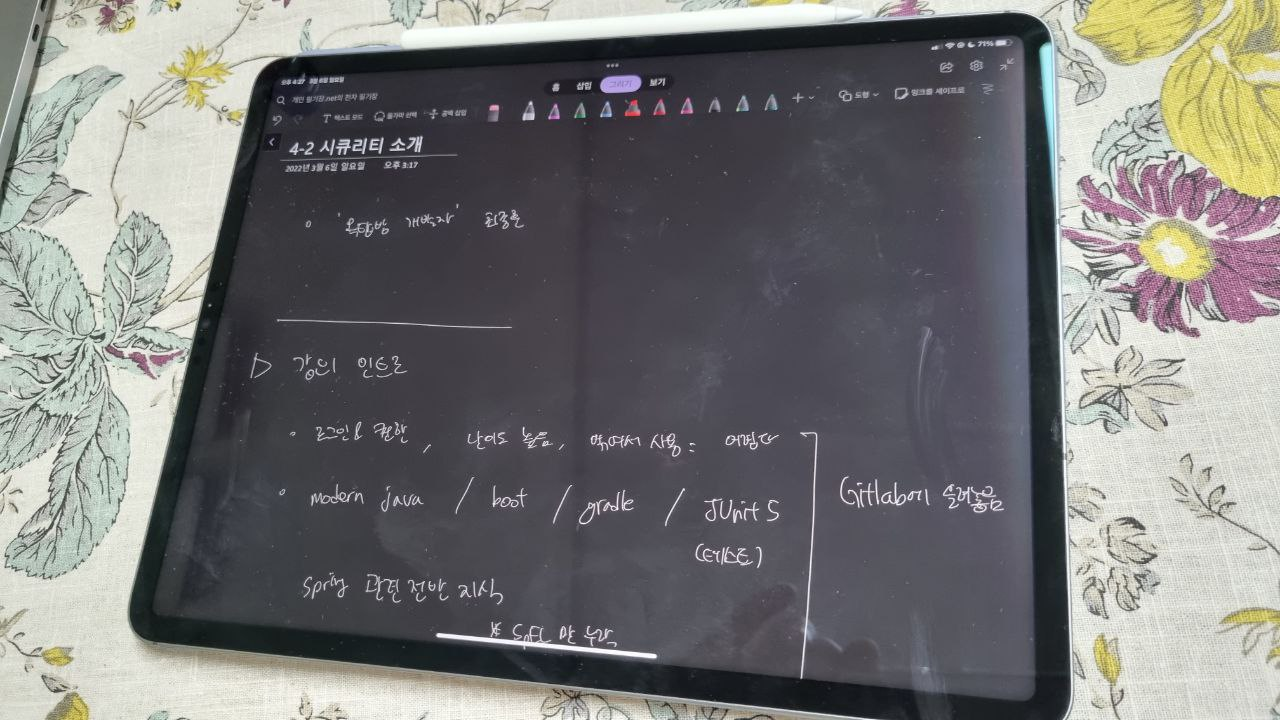 오후 4:27 3월 6일 일요일
71%
홈 삽입 그리기 보기
개인 필기장.net의 전자 필기장
텍스트 모드 올가미 선택 공백 삽입 도형 잉크를 셰이프로
4-2 시큐리티 소개
2022년 3월 6일 일요일 오후 3:17
'옥탑방 개발자' 최종훈
▷ 강의 인트로
로그인 & 권한, 난이도 높음, 엮여서 사용: 어렵다
modern java / boot / gradle / JUnit 5
(테스트)
Gitlab에 올려놓음
Spring 관련 전반 지식
※ SpEL 만 누락